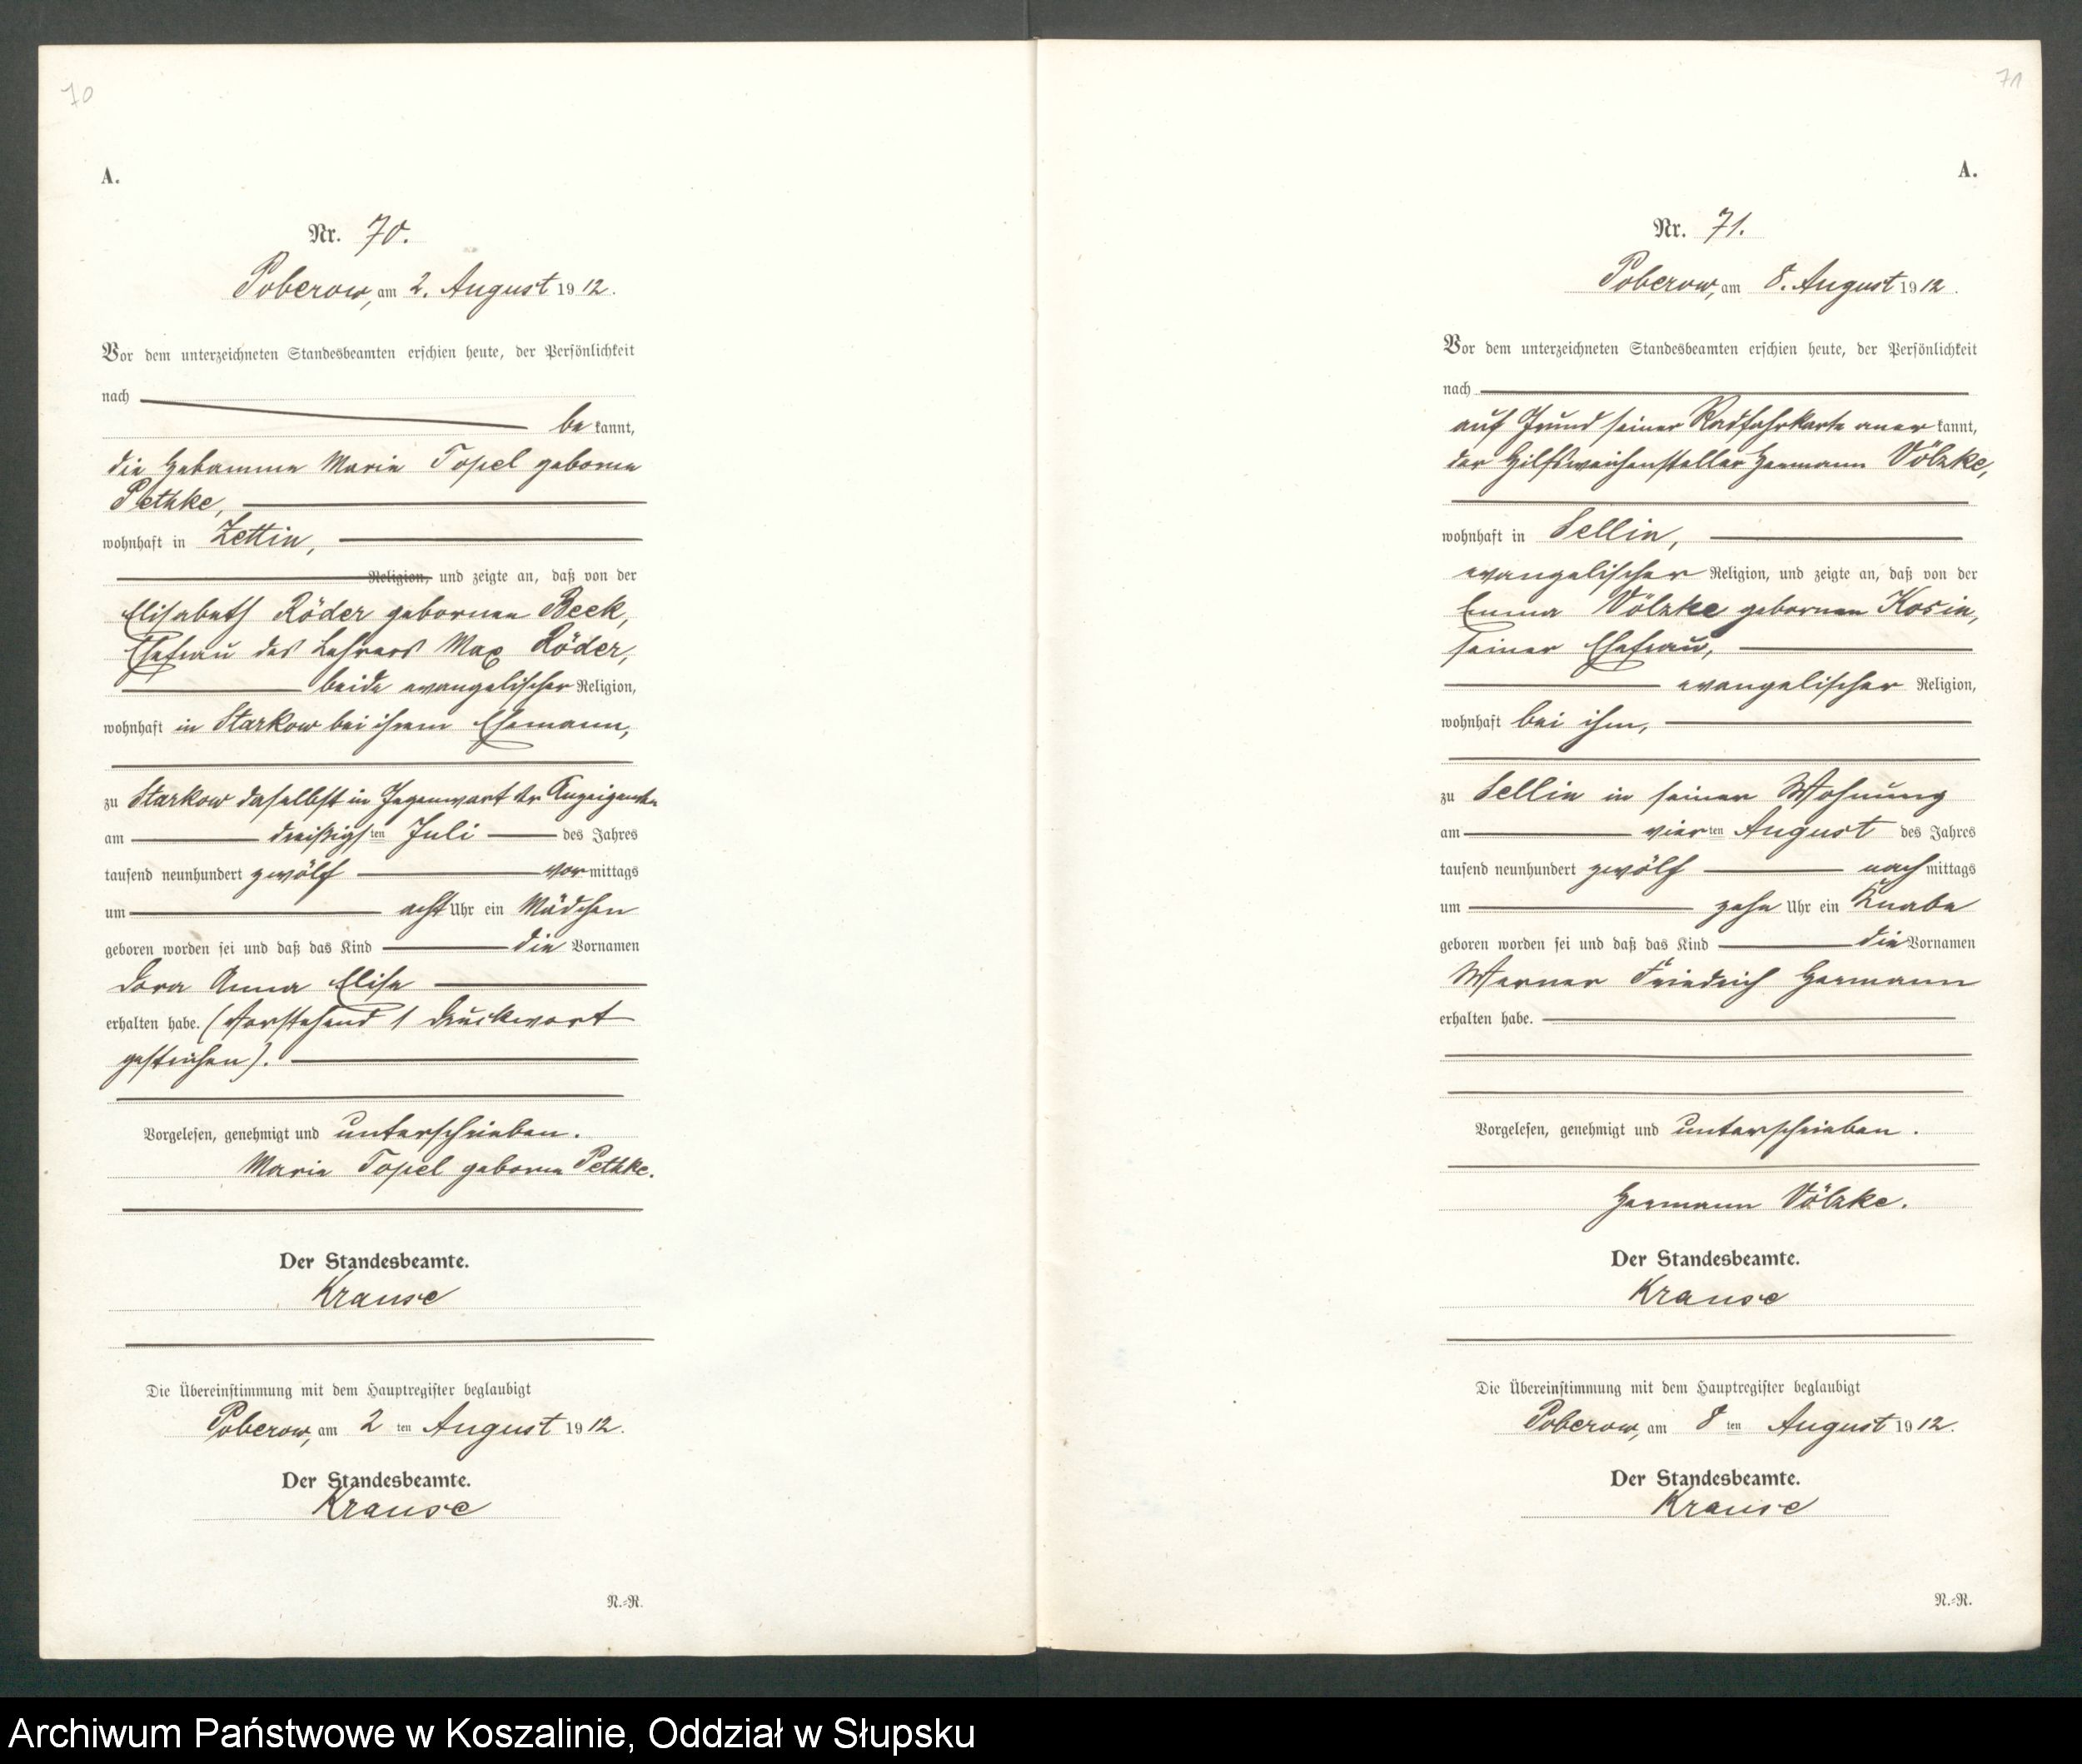 70
A.
Nr. 70.
Poberow, am 2. August 1912.
Vor dem unterzeichneten Standesbeamten erschien heute, der Persönlichkeit
nach
bekannt,
die Hebamme Marie Topel geborne
Pethke,
wohnhaft in Zettin,
Religion, und zeigte an, daß von der
Elisabeth Röder gebornen Beck,
Ehefrau des Lehrers Max Röder,
beide evangelischer Religion,
wohnhaft in Starkow bei ihrem Ehemann,
zu Starkow daselbst in Gegenwart der Anzeigenden
am dreißigsten Juli des Jahres
tausend neunhundert zwölf vormittags
um acht Uhr ein Mädchen
geboren worden sei und daß das Kind die Vornamen
Dora Anna Elise
erhalten habe. (Vorstehend 1 Druckwort
gestrichen).
Vorgelesen, genehmigt und unterschrieben.
Marie Topel geborne Pethke.
Der Standesbeamte.
Krause
Die Übereinstimmung mit dem Hauptregister beglaubigt
Poberow, am 2ten August 1912.
Der Standesbeamte.
Krause
N.-R.
71
A.
Nr. 71.
Poberow, am 8. August 1912.
Vor dem unterzeichneten Standesbeamten erschien heute, der Persönlichkeit
nach
auf Grund seiner Radfahrkarte anerkannt,
der Hilfsweichensteller Hermann Völzke,
wohnhaft in Sellin,
evangelischer Religion, und zeigte an, daß von der
Emma Völzke gebornen Kosin,
seiner Ehefrau,
evangelischer Religion,
wohnhaft bei ihm,
zu Sellin in seiner Wohnung
am vierten August des Jahres
tausend neunhundert zwölf nachmittags
um zehn Uhr ein Knabe
geboren worden sei und daß das Kind die Vornamen
Werner Friedrich Hermann
erhalten habe.
Vorgelesen, genehmigt und unterschrieben.
Hermann Völzke.
Der Standesbeamte.
Krause
Die Übereinstimmung mit dem Hauptregister beglaubigt
Poberow, am 8ten August 1912.
Der Standesbeamte.
Krause
N.-R.
Archiwum Państwowe w Koszalinie, Oddział w Słupsku